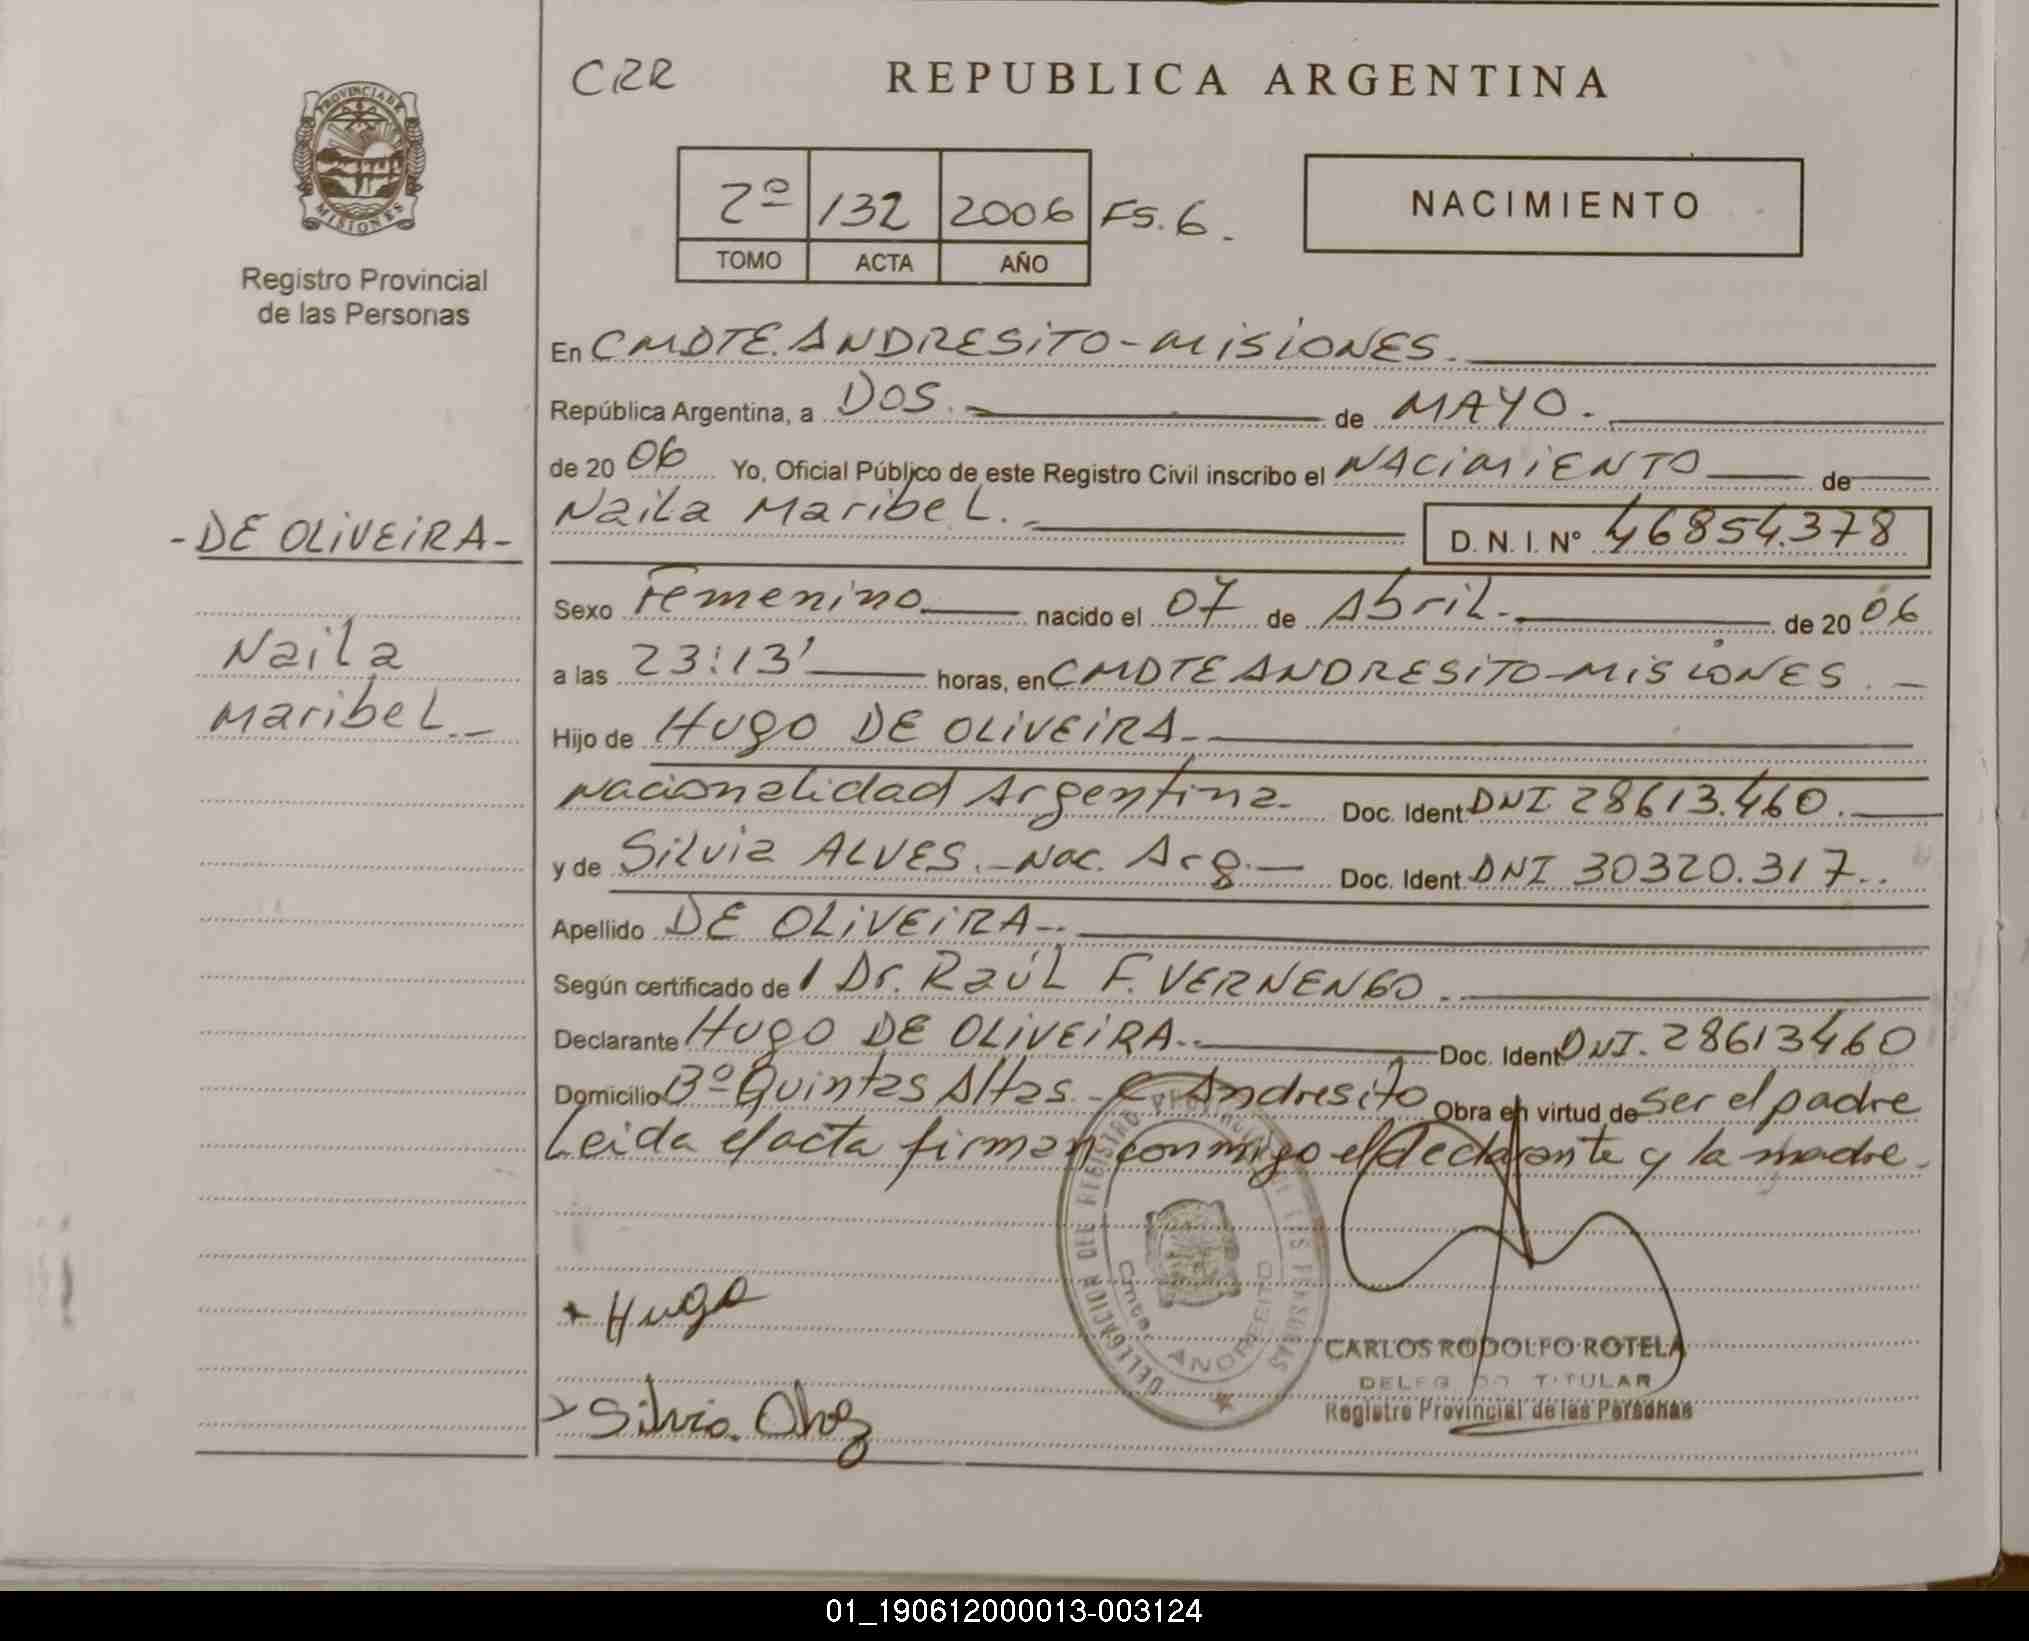 CRR
REPUBLICA ARGENTINA
PROVINCIA DE
MISIONES
Registro Provincial
de las Personas
2º 132 2006 FS. 6.
TOMO ACTA AÑO
NACIMIENTO
En CMDTE. ANDRESITO - MISIONES.
República Argentina, a DOS. de MAYO.
de 20 06 Yo, Oficial Público de este Registro Civil inscribo el NACIMIENTO de
Naila Maribel. D. N. I. N° 46854.378
- DE OLIVEIRA -
Naila
Maribel. -
Sexo Femenino nacido el 07 de Abril. de 20 06
a las 23:13' horas, en CMDTE ANDRESITO - MISIONES. -
Hijo de Hugo DE OLIVEIRA -
Nacionalidad Argentina. Doc. Ident. DNI 28613.460.
y de Silvia ALVES. - Nac. Arg. - Doc. Ident. DNI 30320.317..
Apellido DE OLIVEIRA -.
Según certificado de l Dr. Raúl F. VERNENGO.
Declarante Hugo DE OLIVEIRA.. Doc. Ident. DNI. 28613460
Domicilio Bº Quintas Altas - C. Andresito Obra en virtud de ser el padre
Leida el acta firman conmigo el declarante y la madre.
Hugo
Silvia.
DELEGACION DEL REGISTRO PROVINCIAL DE LAS PERSONAS
ANDRECITO
CARLOS RODOLFO ROTELA
DELEGADO TITULAR
Registro Provincial de las Personas
01_190612000013-003124